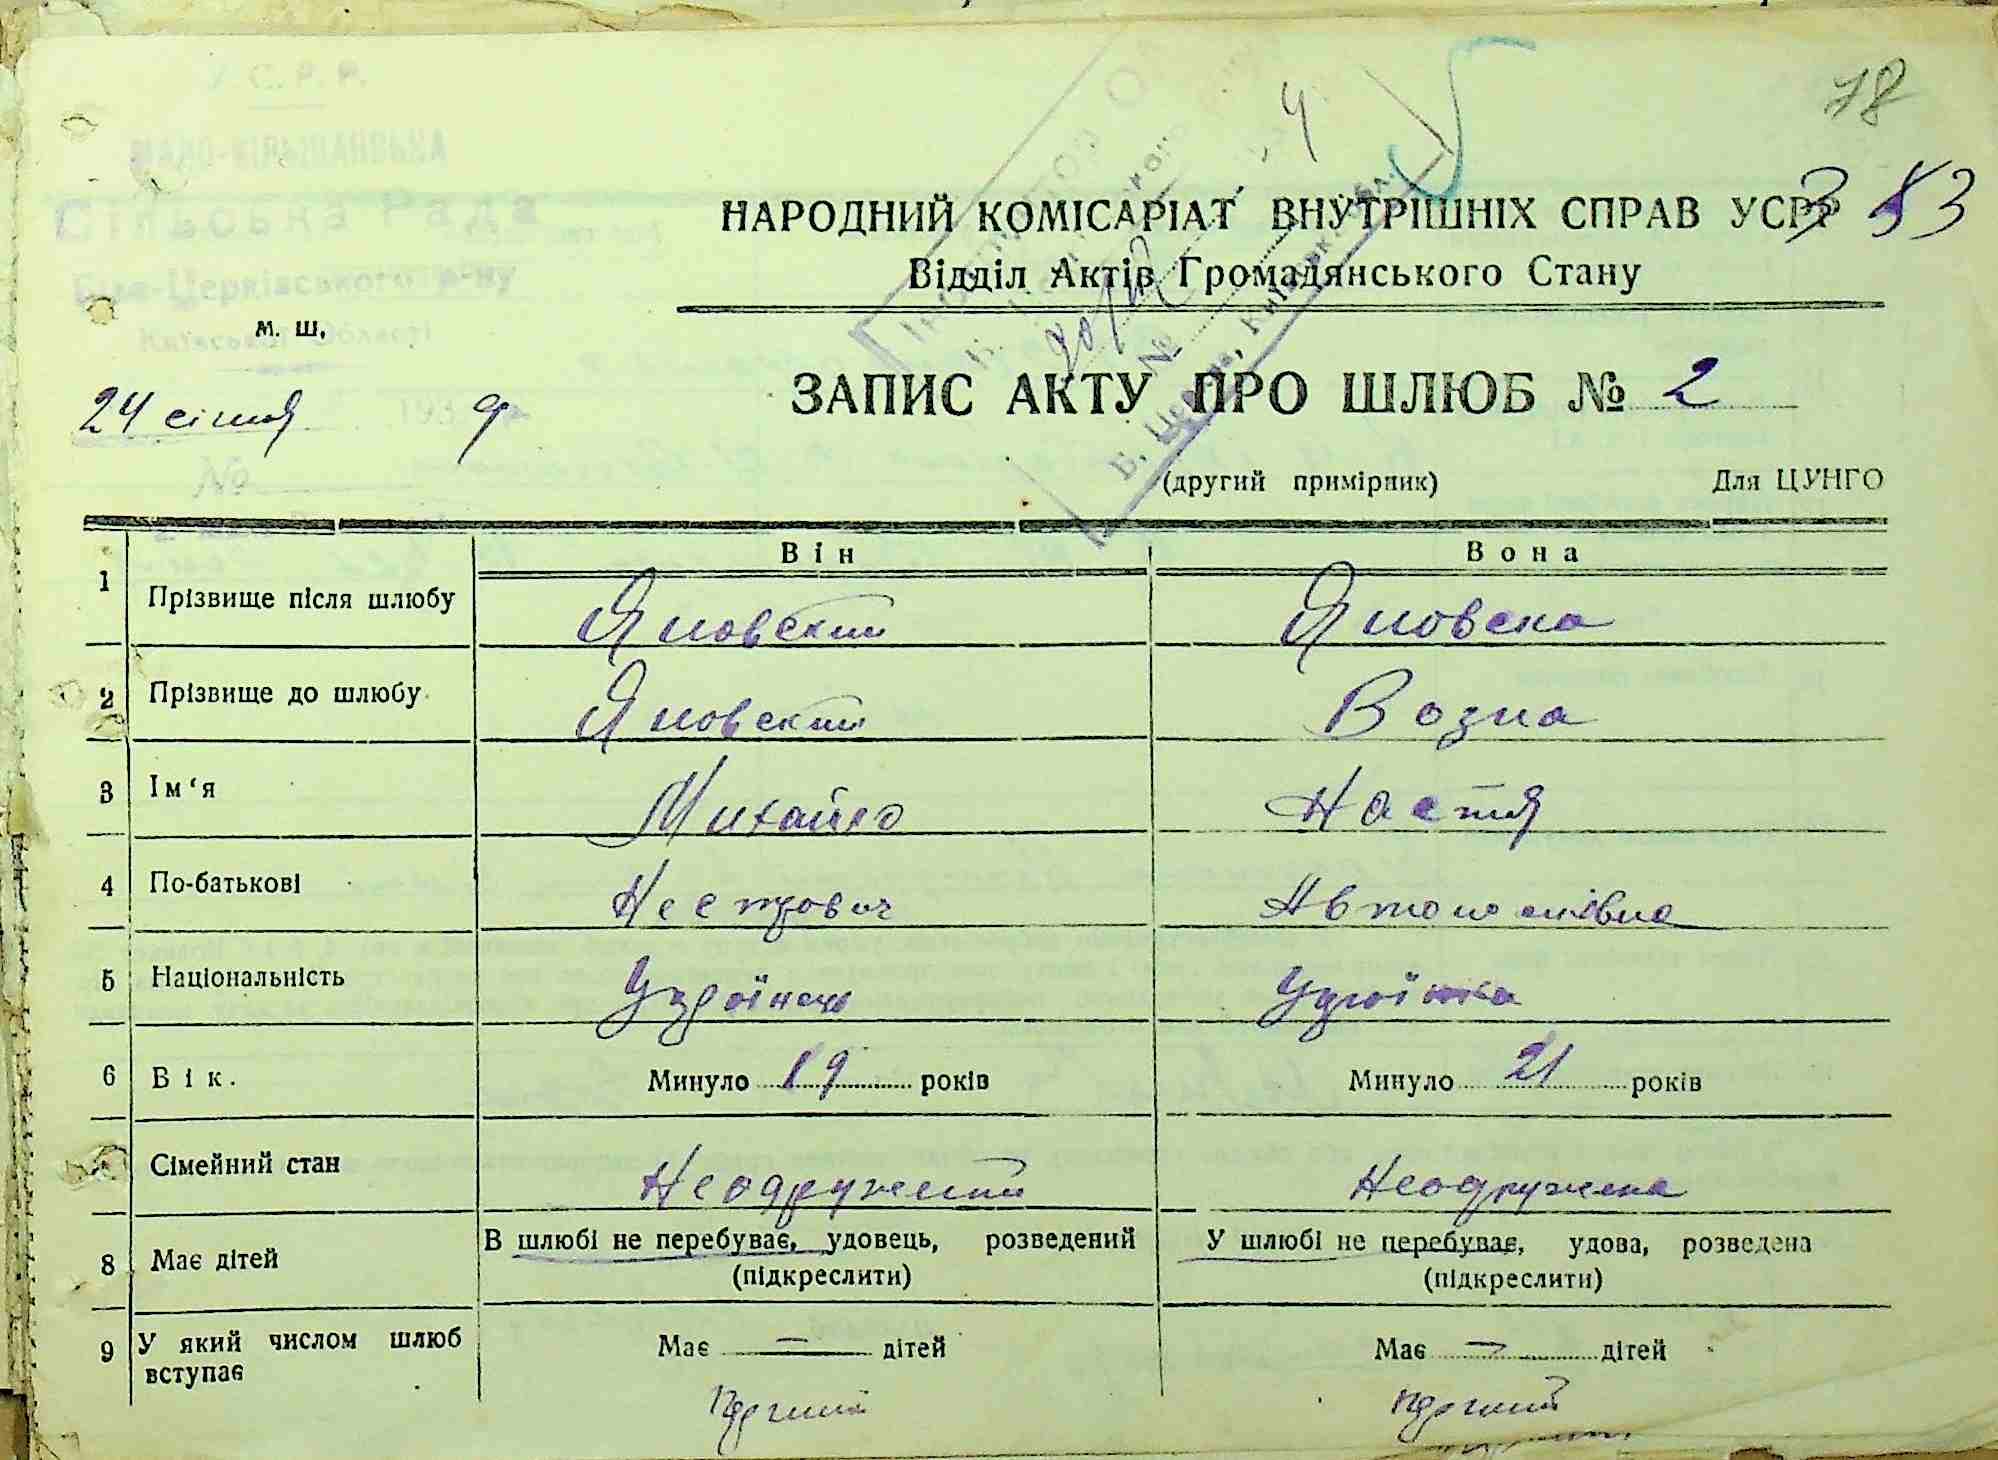 78
У С. Р. Р.
МАЛО-ВІЛЬШАНСЬКА
Сільська Рада
Біло-Церківського р-ну
Київської Області
м. ш.
НАРОДНИЙ КОМІСАРІАТ ВНУТРІШНІХ СПРАВ УСРР 53
Відділ Актів Громадянського Стану
24 січня 193
№
ЗАПИС АКТУ ПРО ШЛЮБ № 2
(другий примірник) Для ЦУНГО
№
Б. Церква, Київськ. обл.
Він Вона
1 Прізвище після шлюбу Яновский Яновска
2 Прізвище до шлюбу Яновский Возна
3 Ім'я Михайло Настя
4 По-батькові Нестрович Автономівна
5 Національність Українець Українка
6 Вік. Минуло 19 років Минуло 21 років
Сімейний стан Неодружений Неодружена
8 Має дітей В шлюбі не перебуває, удовець, розведений У шлюбі не перебуває, удова, розведена
(підкреслити) (підкреслити)
9 У який числом шлюб вступає Має — дітей Має — дітей
Перший Перший